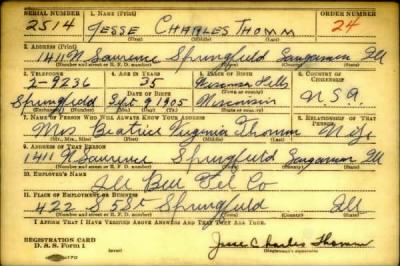 SERIAL NUMBER 1. NAME (Print) ORDER NUMBER
2514 Jesse Charles Thomm 24
(First) (Middle) (Last)
2. ADDRESS (Print)
1411 N Laurence Springfield Sangamon Ill
(Number and street or R. F. D. number) (Town) (County) (State)
3. TELEPHONE 4. AGE IN YEARS 5. PLACE OF BIRTH 6. COUNTRY OF CITIZENSHIP
2-9236 35 Falls
DATE OF BIRTH (Town or county)
Springfield Sept 9 1905 Wisconsin U.S.A.
(Exchange) (Mo.) (Day) (Yr.) (State or country)
7. NAME OF PERSON WHO WILL ALWAYS KNOW YOUR ADDRESS 8. RELATIONSHIP OF THAT PERSON
Mrs Beatrice Virginia Thomm
(Mr., Mrs., Miss) (First) (Middle) (Last)
9. ADDRESS OF THAT PERSON
1411 N Laurence Springfield Sangamon Ill
(Number and street or R. F. D. number) (Town) (County) (State)
10. EMPLOYER'S NAME
Ill Bell Tel Co
11. PLACE OF EMPLOYMENT OR BUSINESS
422 S 5 St Springfield Ill
(Number and street or R. F. D. number) (Town) (County) (State)
I AFFIRM THAT I HAVE VERIFIED ABOVE ANSWERS AND THAT THEY ARE TRUE.
REGISTRATION CARD
D. S. S. Form 1 Jesse Charles Thomm
(Registrant's signature)